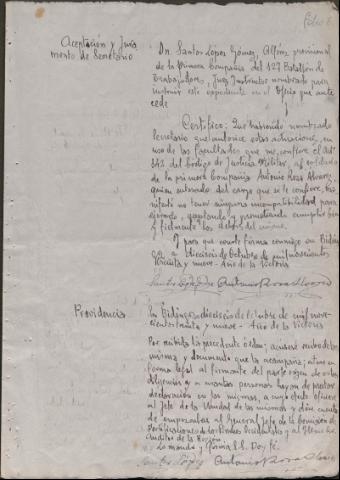 Aceptación y Jura
mento de Secretario
Dn. Santos López Gómez, Alférez provisional
de la Primera Compañía del 127 Batallón de
Trabajadores, Juez Instructor nombrado para
instruir este expediente en el Oficio que ante
cede
Certifico: Que habiendo nombrado
Secretario que autorice estas actuaciones, en
uso de las facultades que me confiere el Artº
142 del Código de Justicia Militar, al soldado
de la primera Compañía Antonio Rozo Alvarez,
quien enterado del cargo que se le confiere, ma
nifestó no tener ninguna incompatibilidad para
ejercerlo, aceptando y prometiendo cumplir bien
y fielmente los deberes del mismo.
Y para que conste firma conmigo en
a dieciseis de Octubre de mil novecientos
treinta y nueve - Año de la Victoria
Santos López Antonio Rozo Alvarez
Providencia
En a dieciseis de Octubre de mil nove-
cientos treinta y nueve - Año de la Victoria
Por recibida la precedente orden; acusese recibo de la
misma y documento que la acompaña; citese en
forma legal al firmante del parte origen de estas
diligencias y a cuantas personas hayan de prestar
declaración en las mismas, a cuyo efecto oficiese
al Jefe de la Unidad de los mismos y dése cuenta
de empezarlas al General Jefe de la Comisión de
Fortificaciones de los Pirineos Occidentales y al Ilmo Sr.
Auditor de la Región.
Lo mandó y firma S.S. Doy fé.
Santos López Antonio Rozo Alvarez